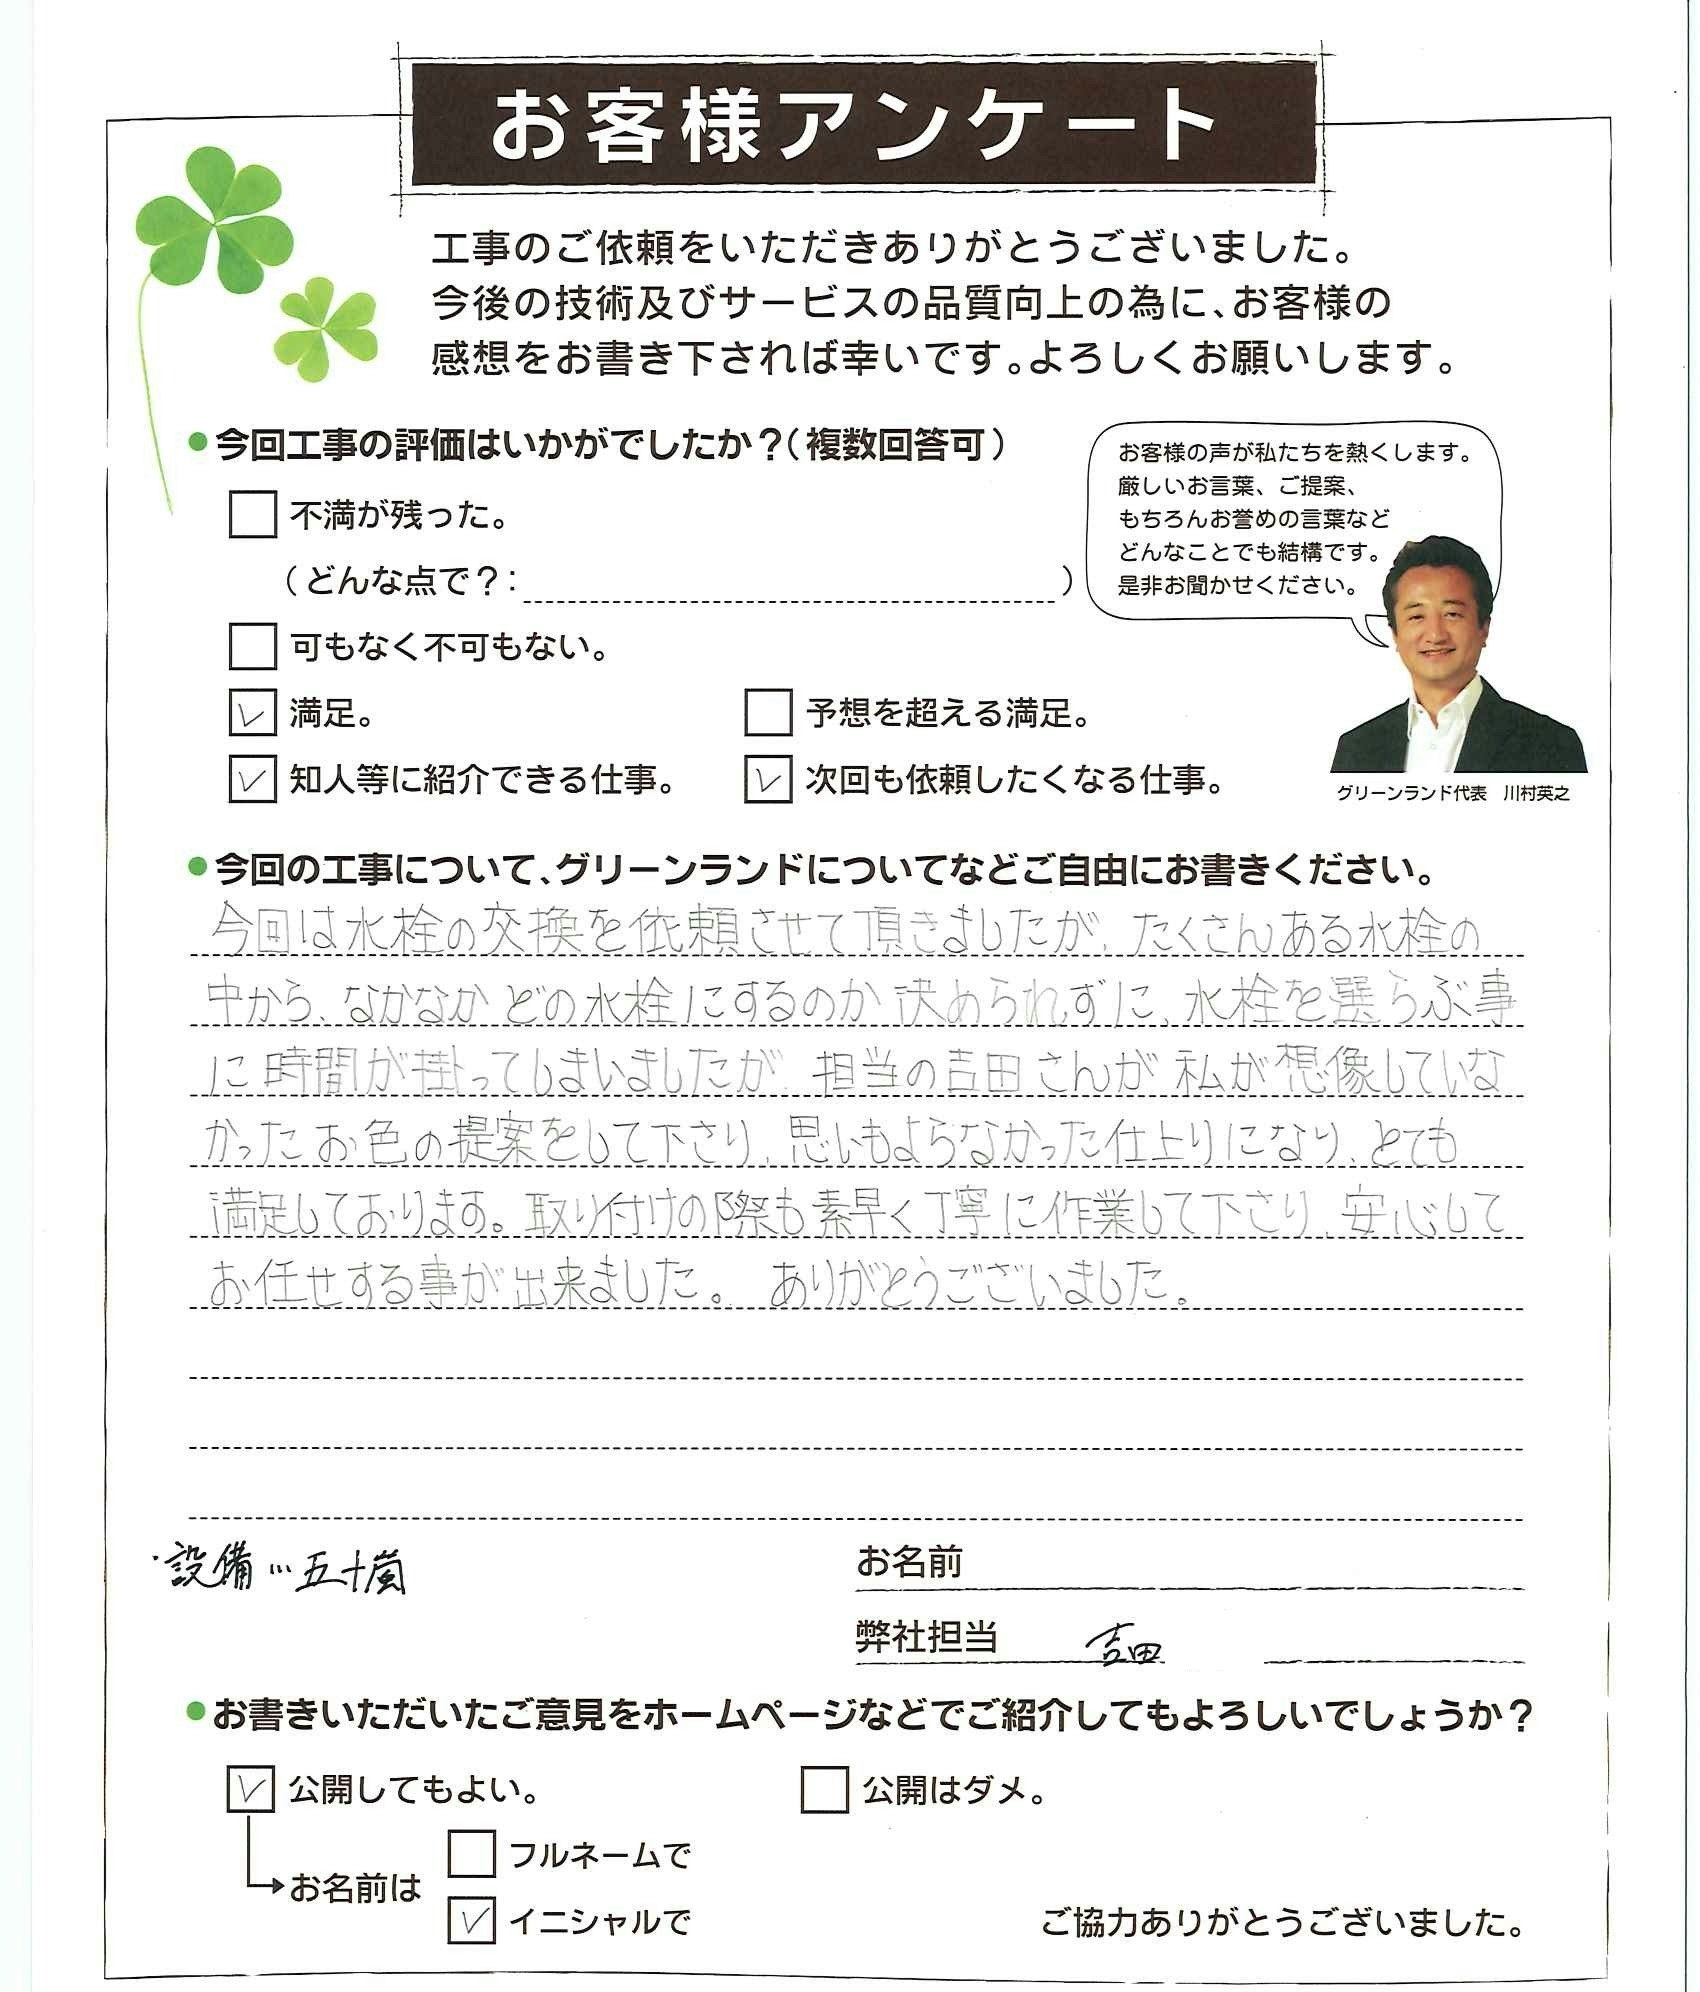 お客様アンケート
工事のご依頼をいただきありがとうございました。
今後の技術及びサービスの品質向上の為に、お客様の
感想をお書き下されば幸いです。よろしくお願いします。
●今回工事の評価はいかがでしたか？（複数回答可）
不満が残った。
（どんな点で？：　　　　）
可もなく不可もない。
満足。
予想を超える満足。
知人等に紹介できる仕事。
次回も依頼したくなる仕事。
お客様の声が私たちを熱くします。
厳しいお言葉、ご提案、
もちろんお誉めの言葉など
どんなことでも結構です。
是非お聞かせください。
グリーンランド代表　川村英之
●今回の工事について、グリーンランドについてなどご自由にお書きください。
今回は水栓の交換を依頼させて頂きましたが、たくさんある水栓の
中から、なかなかどの水栓にするのか決められずに、水栓を選らぶ事
に時間が掛ってしまいましたが、担当の吉田さんが私が想像していな
かったお色の提案をして下さり、思いもよらなかった仕上りになり、とても
満足しております。取り付けの際も素早く丁寧に作業して下さり、安心して
お任せする事が出来ました。ありがとうございました。
・設備…五十嵐
お名前
弊社担当　吉田
●お書きいただいたご意見をホームページなどでご紹介してもよろしいでしょうか？
公開してもよい。
公開はダメ。
お名前は
フルネームで
イニシャルで
ご協力ありがとうございました。